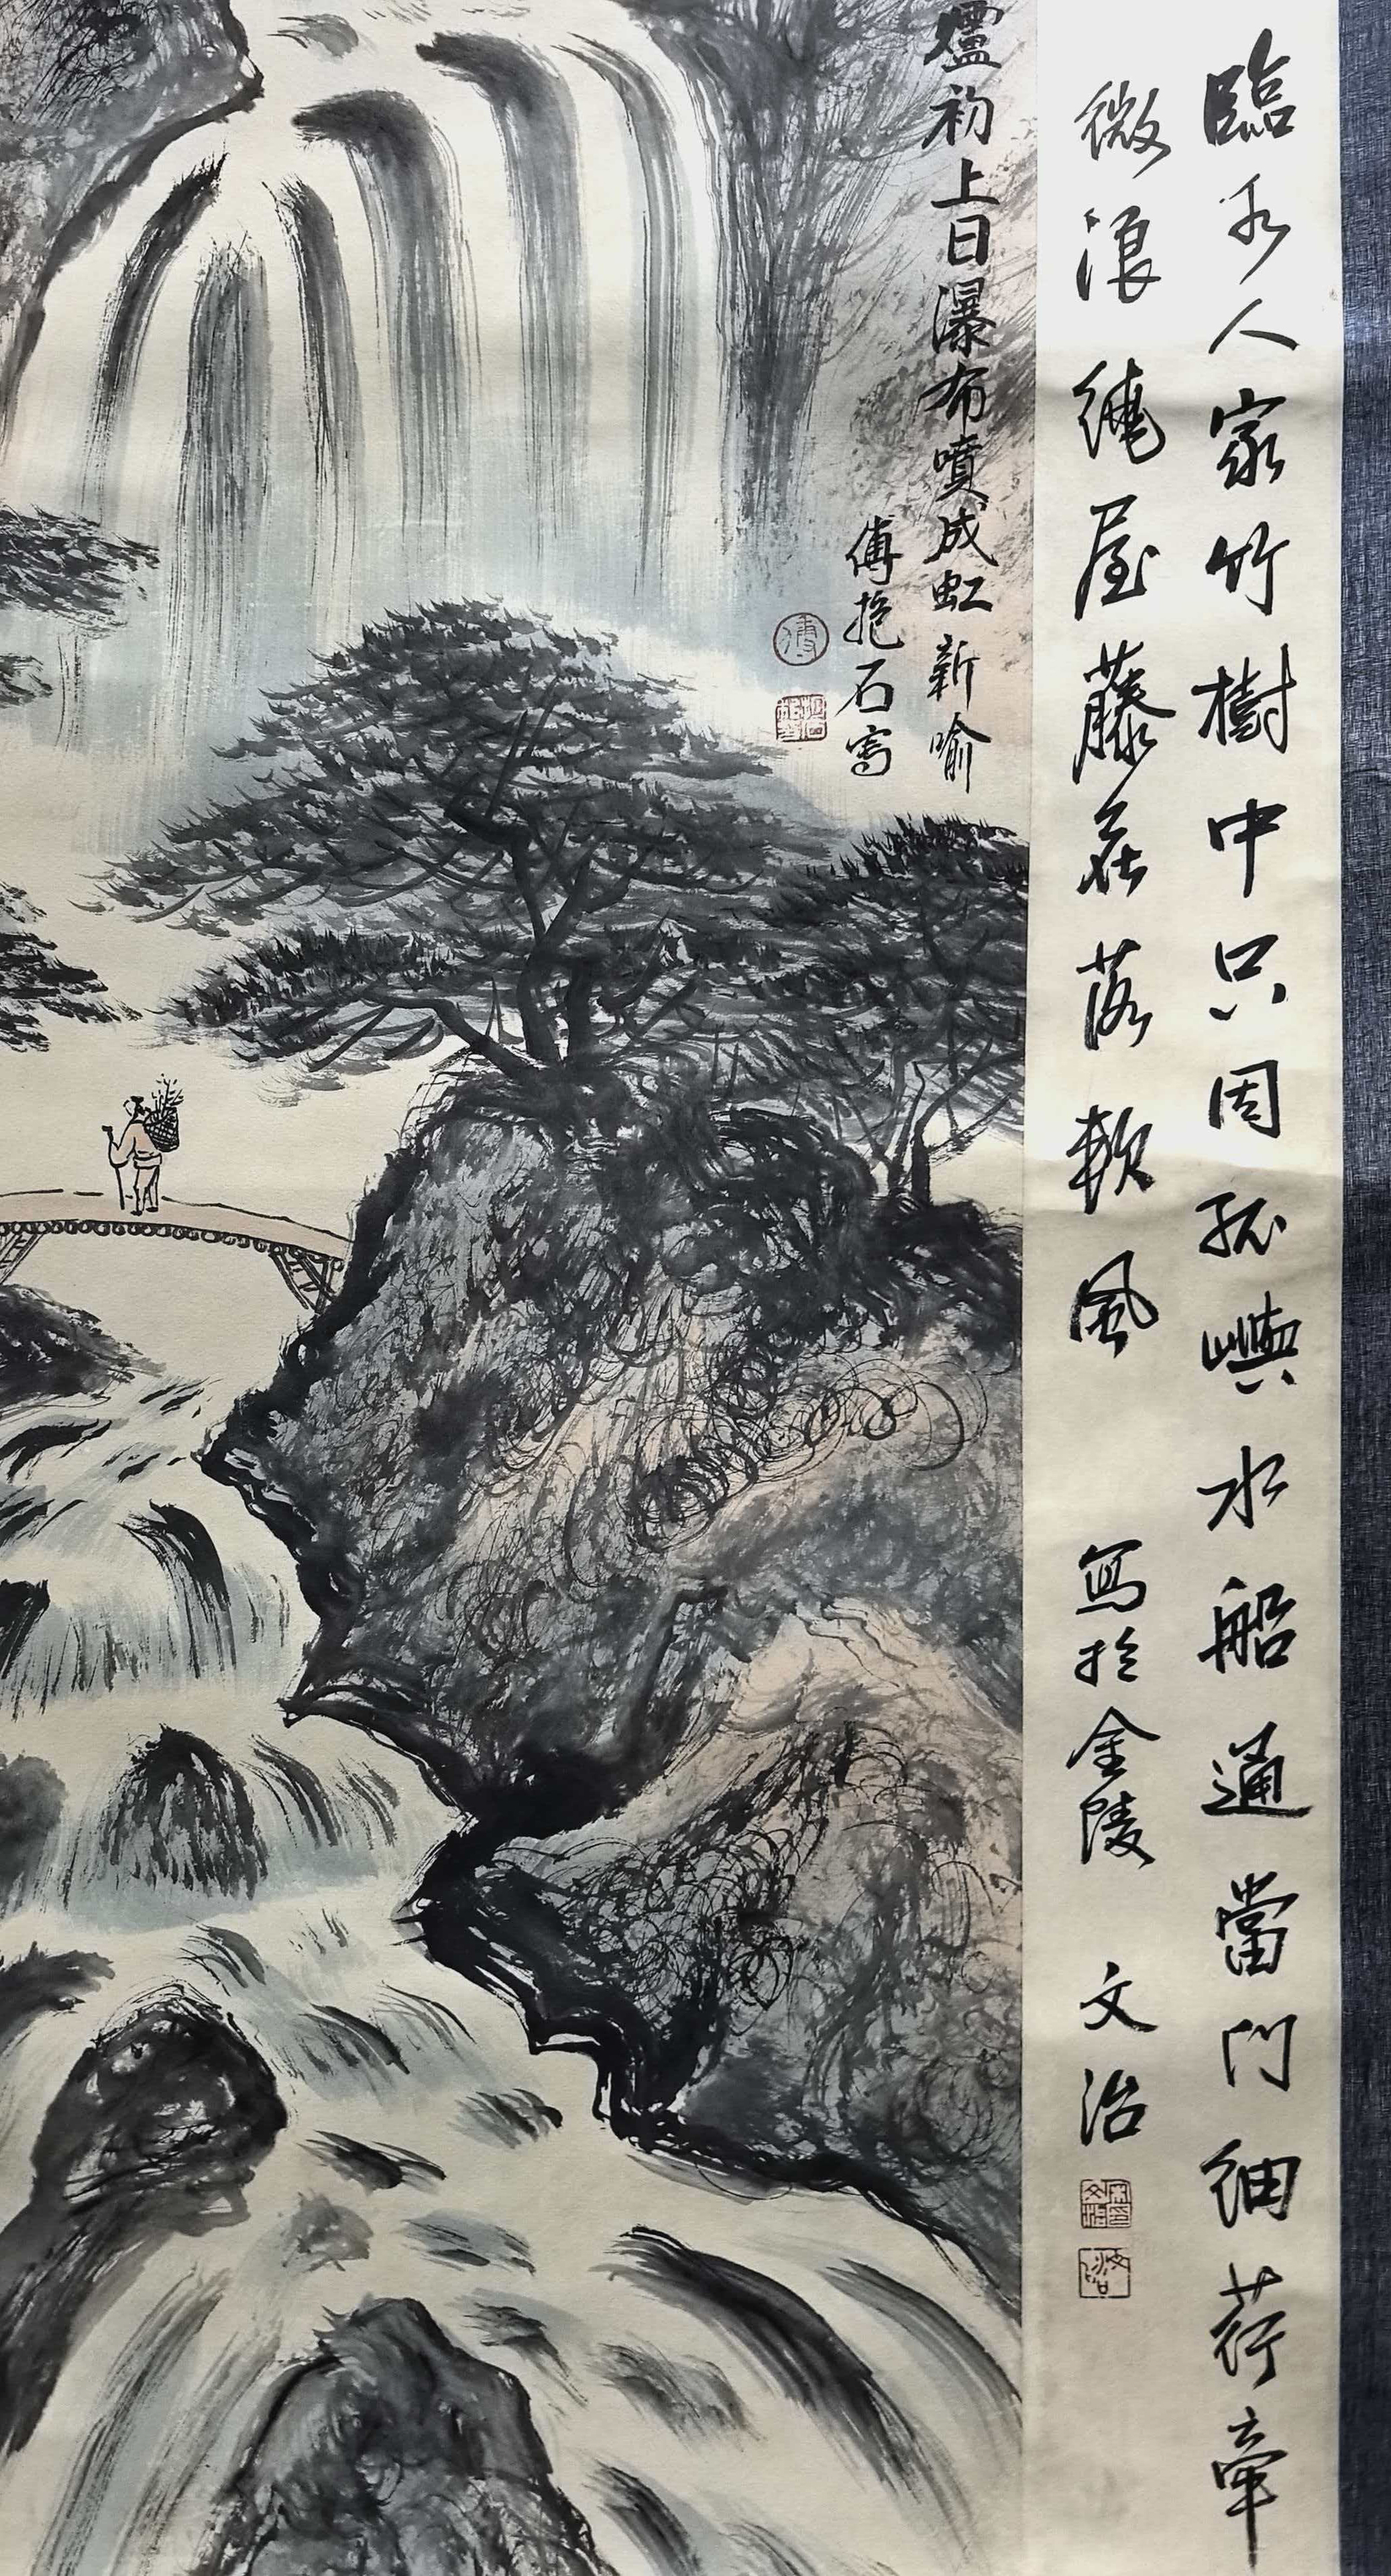 臨水人家竹樹中只因孤嶼水船通當門細荇牽
微浪繞屋藤花落軟風 寫於金陵 文治
爐初上日瀑布噴成虹 新喻
傅抱石寫
傅